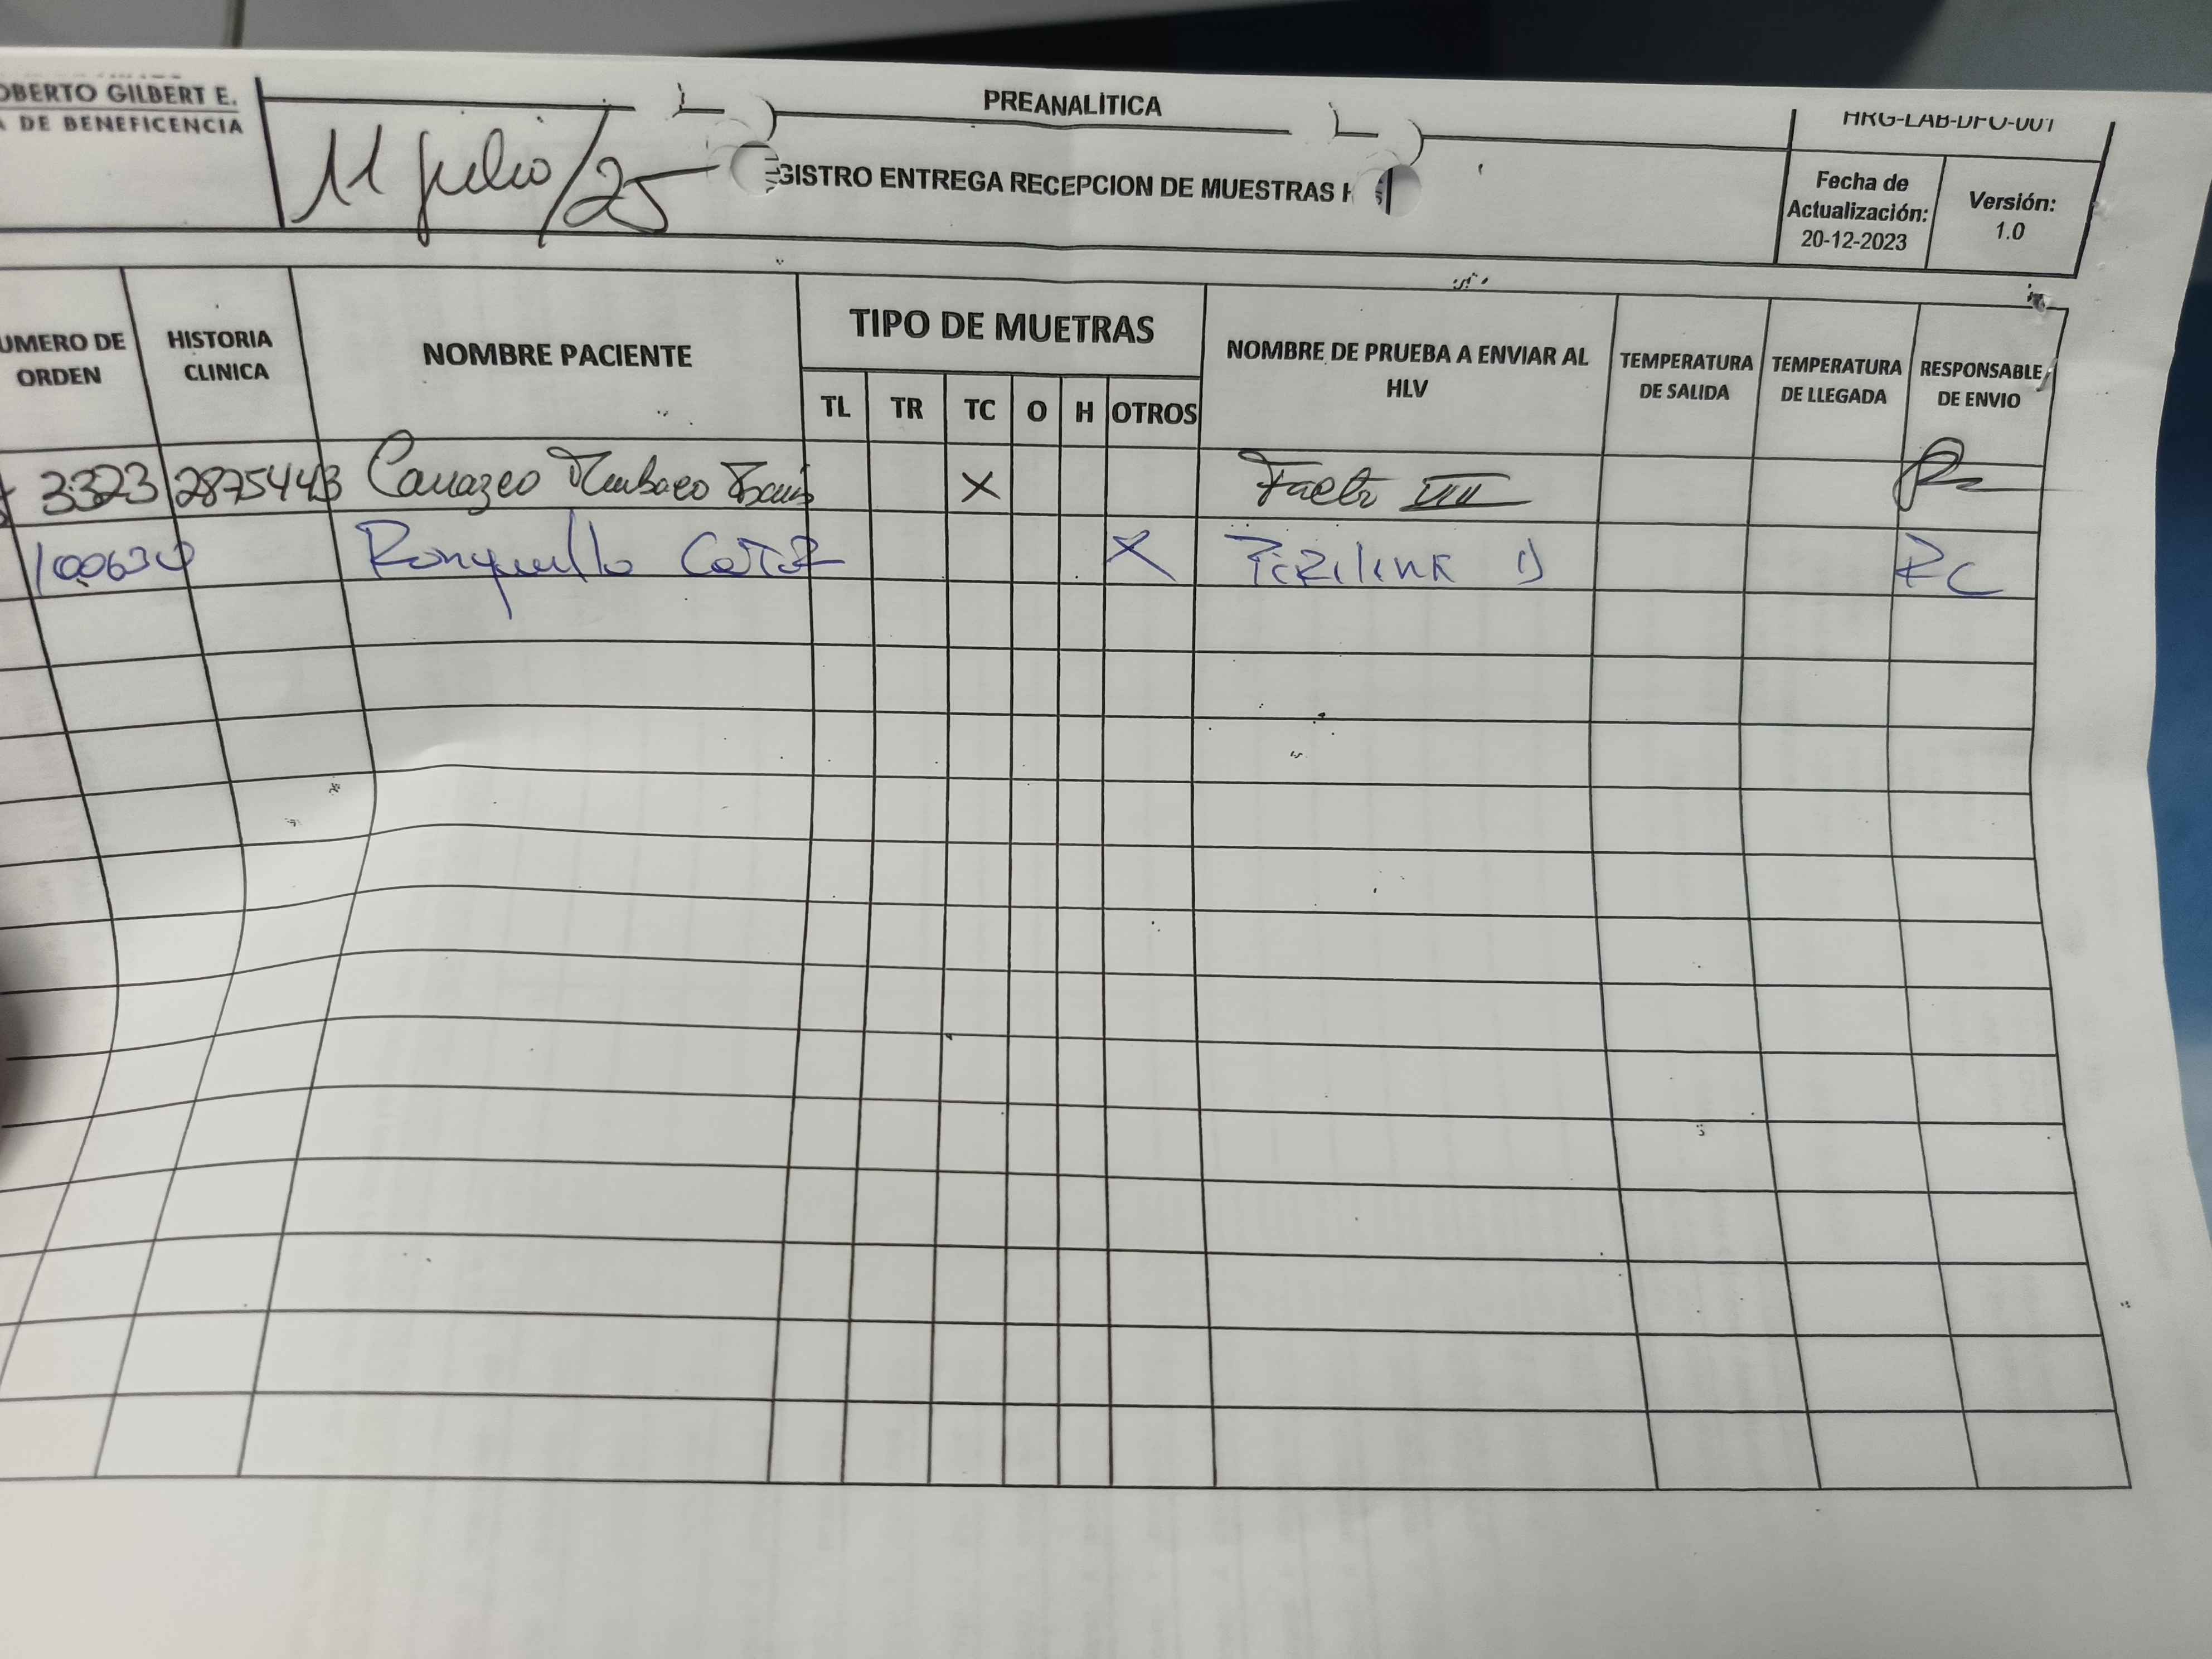 OBERTO GILBERT E.
A DE BENEFICENCIA
11 julio/25
PREANALÍTICA
GISTRO ENTREGA RECEPCION DE MUESTRAS H
HRG-LAB-DFO-001
Fecha de Actualización: 20-12-2023
Versión: 1.0
UMERO DE ORDEN
HISTORIA CLINICA
NOMBRE PACIENTE
TIPO DE MUETRAS
TL TR TC O H OTROS
NOMBRE DE PRUEBA A ENVIAR AL HLV
TEMPERATURA DE SALIDA
TEMPERATURA DE LLEGADA
RESPONSABLE DE ENVIO
3323 2875443 X Factor VIII
100630 Ronquillo X RC